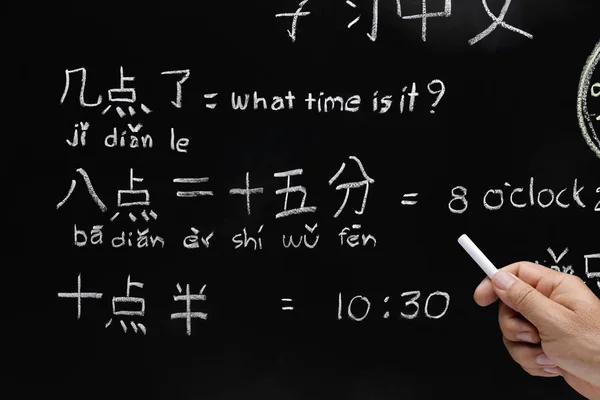 学习中文
几点了 = what time is it?
jǐ diǎn le
八点二十五分 = 8 o'clock
bā diǎn èr shí wǔ fēn
十点半 = 10:30